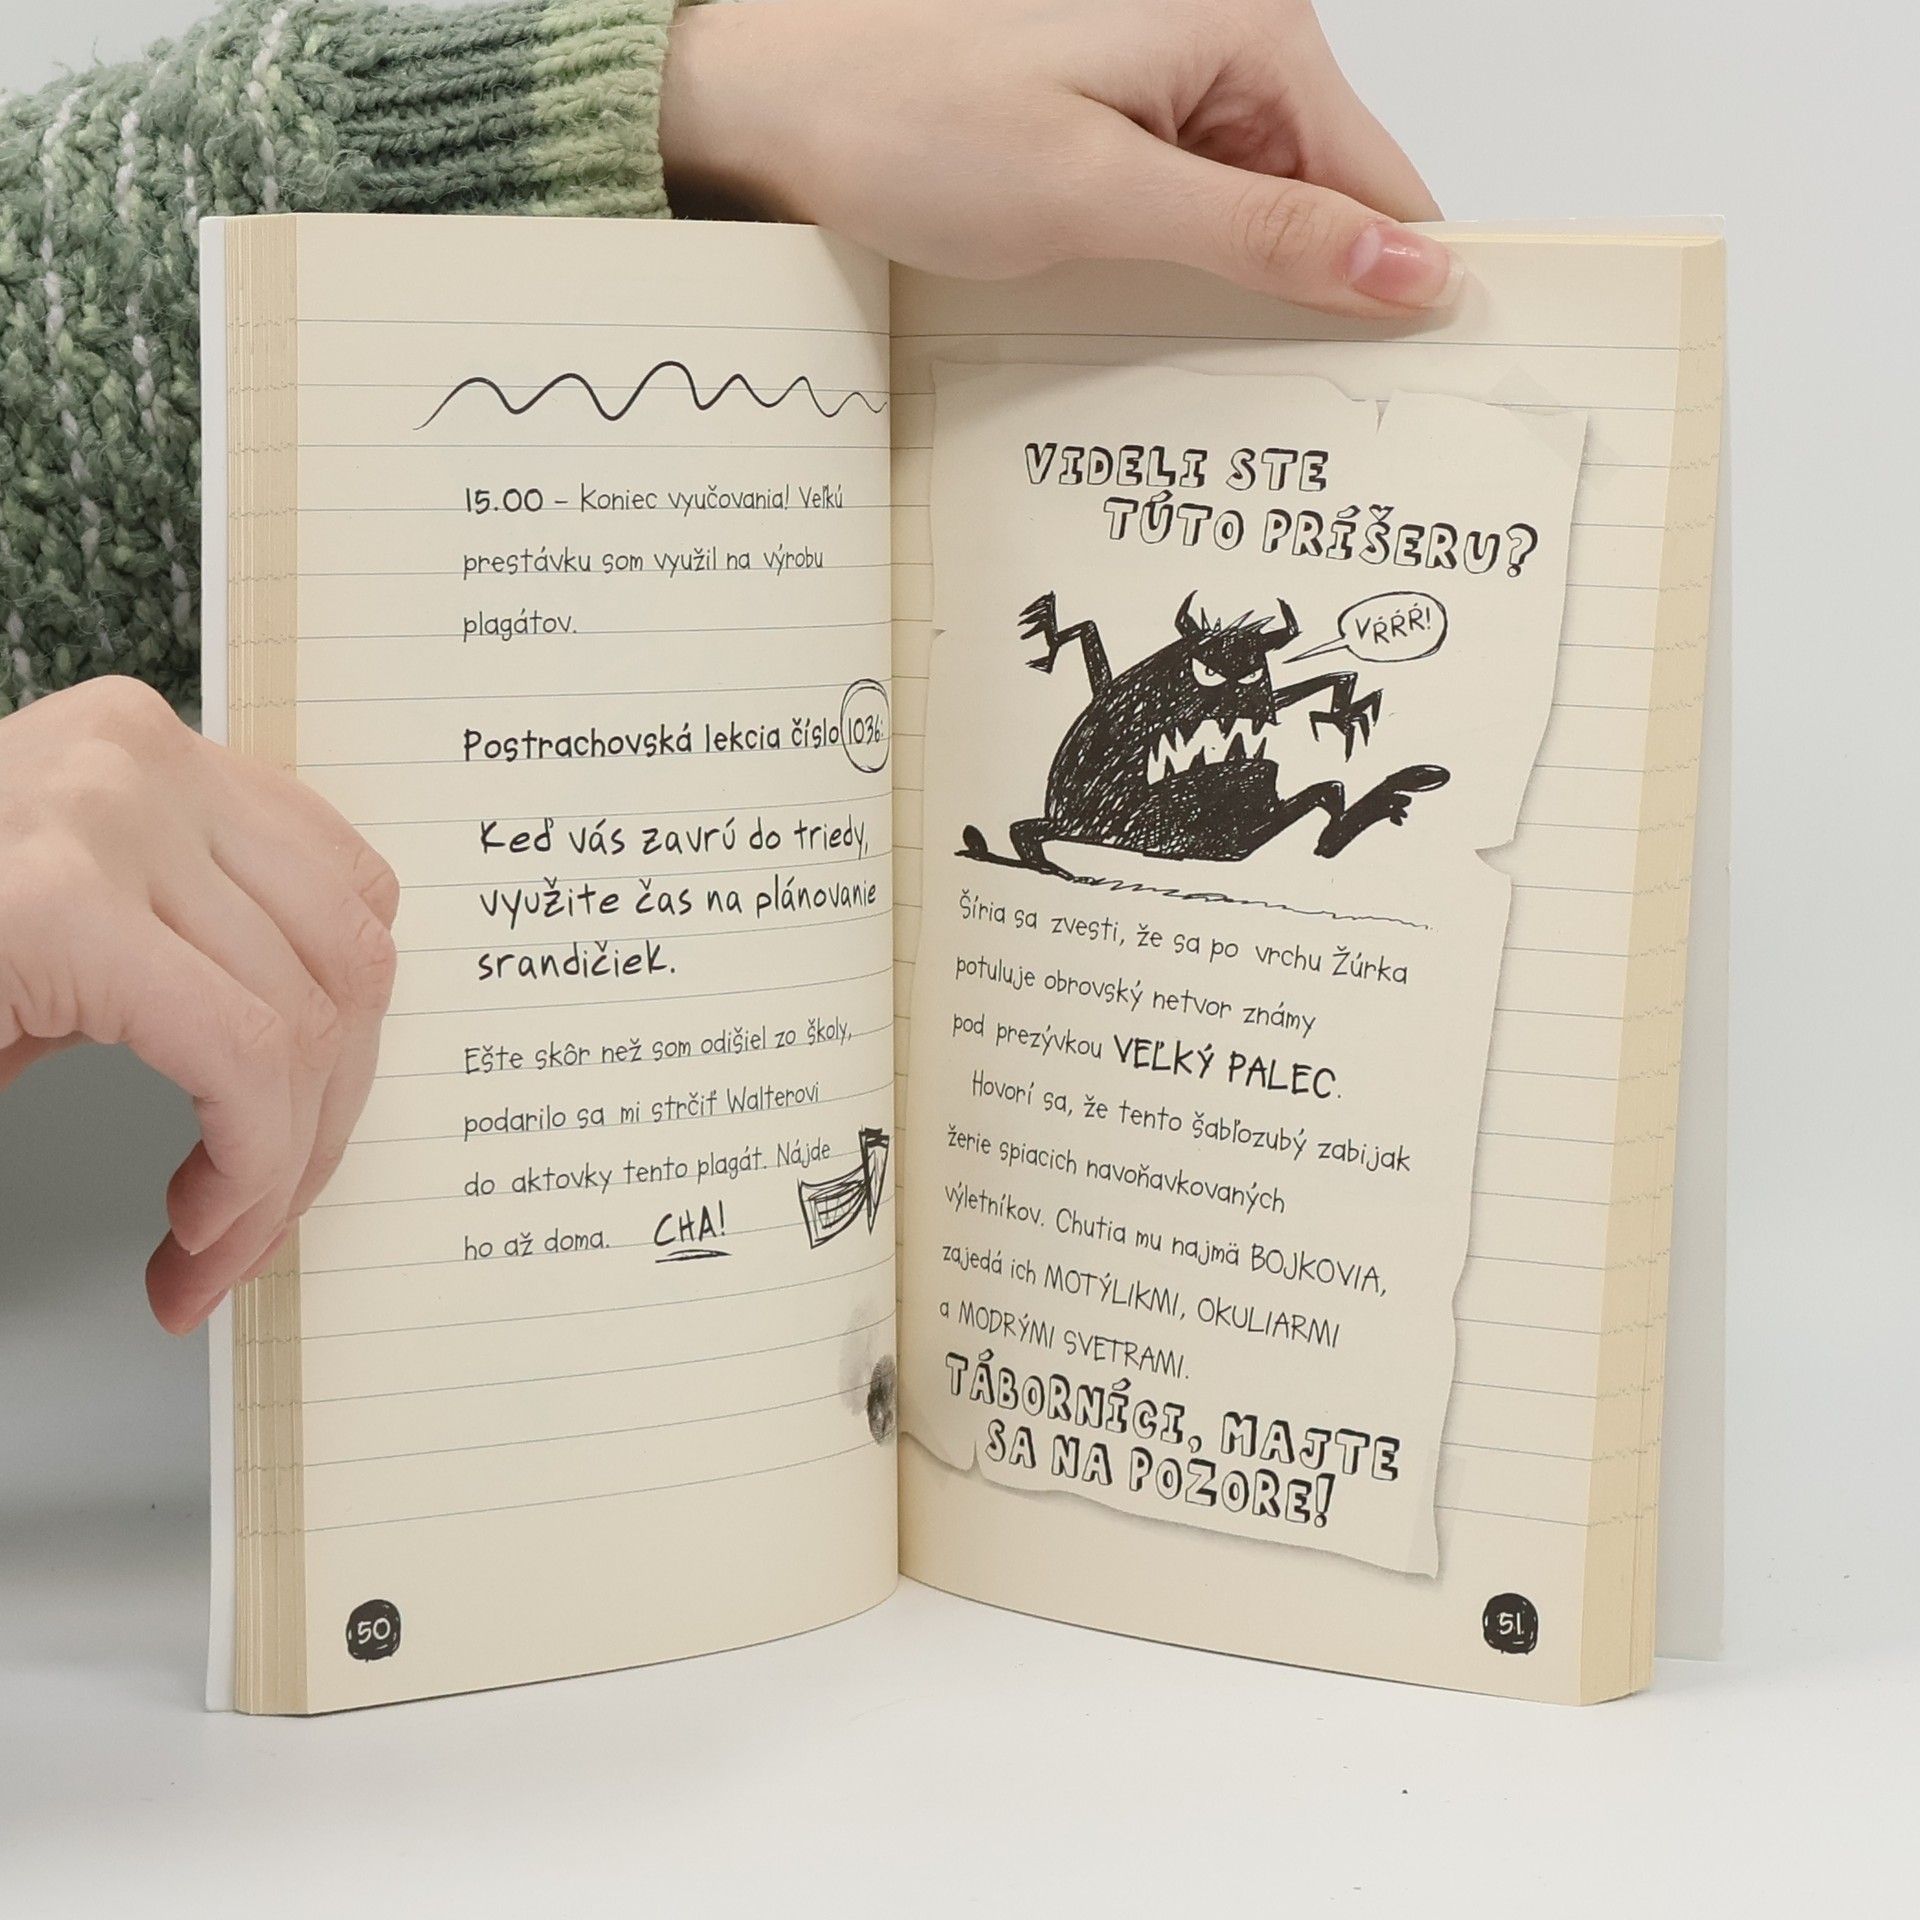 15.00 – Koniec vyučovania! Veľkú
prestávku som využil na výrobu
plagátov.
Postrachovská lekcia číslo 1036:
Keď vás zavrú do triedy,
využite čas na plánovanie
srandičiek.
Ešte skôr než som odišiel zo školy,
podarilo sa mi strčiť Walterovi
do aktovky tento plagát. Nájde
ho až doma. CHA!
50
VIDELI STE
TÚTO PRÍŠERU?
VŔŔŔ!
Šíria sa zvesti, že sa po vrchu Žúrka
potuluje obrovský netvor známy
pod prezývkou VEĽKÝ PALEC.
Hovorí sa, že tento šabľozubý zabijak
žerie spiacich navoňavkovaných
výletníkov. Chutia mu najmä BOJKOVIA,
zajedá ich MOTÝLIKMI, OKULIARMI
a MODRÝMI SVETRAMI.
TÁBORNÍCI, MAJTE
SA NA POZORE!
51